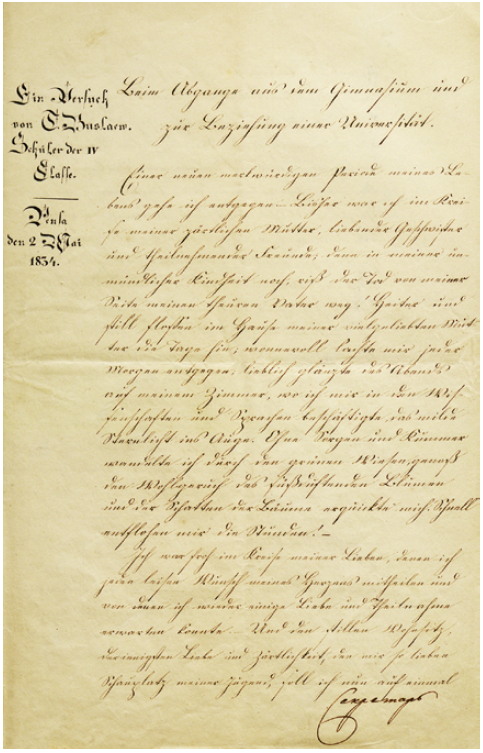 Ein Versuch
von T. Buslaew.
Schüler der IV
Classe.
Pensa
den 2 Mai
1834.
Beim Abgange aus dem Gimnasium und
zur Beziehung einer Universität.
Einer neuen merkwürdigen Periode meines Le-
bens gehe ich entgegen. Bisher war ich im Krei-
se meiner zärtlichen Mutter, liebender Geschwister
und theilnehmender Freunde; denn in meiner un-
mündlicher Kindheit noch, riß der Tod von meiner
Seite meinen theuren Vater weg. Heiter und
still floßen im Hause meiner vielgeliebten Mut-
ter die Tage hin; wonnevoll lachte mir jeder
Morgen entgegen; lieblich glänzte des Abends
auf meinem Zimmer, wo ich mir in den Wis-
senschaften und Sprachen beschäftigte, das milde
Sternlicht ins Auge. Ohne Sorgen und Kummer
wandelte ich durch den grünen Wiesen, genoß
den Wohlgeruch des süßduftenden Blumen
und der Schatten der Bäume erquickte mich. Schnell
entflohen mir die Stunden! –
Ich war froh im Kreise meiner Lieben, denen ich
jeden leisen Wunsch meines Herzens mittheilen und
von denen ich wieder einige Liebe und Theilnahme
erwarten konnte. – Und den stillen Wohnsitz,
der innigsten Liebe und Zärtlichkeit, den mir so lieben
Schauplatz meiner Jugend, soll ich nun auf einmal
Секретарь